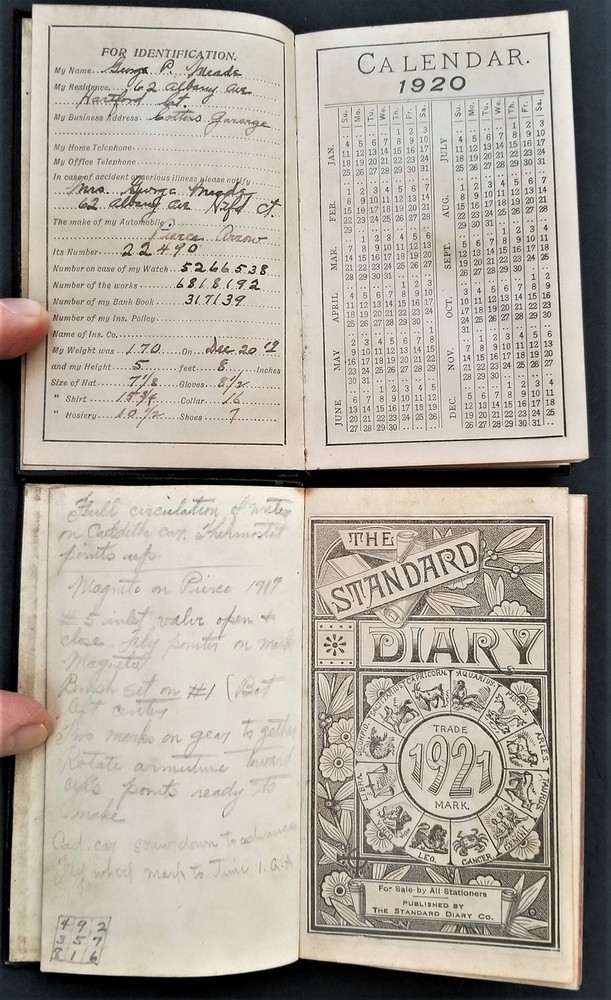 FOR IDENTIFICATION.
My Name George P. Meade
My Residence 62 Albany Ave
Hartford Ct.
My Business Address Cotters Gararge
My Home Telephone
My Office Telephone
In case of accident or serious illness please notify
Mrs. George Meade
62 Albany Ave Htfd Ct.
The make of my Automobile
Pierce Arrow
Its Number 22490
Number on case of my Watch 5266538
Number of the works 6818192
Number of my Bank Book 317139
Number of my Ins. Policy
Name of Ins. Co.
My Weight was 170 On Dec 20 19
and my Height 5 feet 8 Inches
Size of Hat 7 1/8 Gloves 8 1/2
" Shirt 15 3/4 Collar 16
" Hosiery 10 1/2 Shoes 7
CALENDAR.
1920
Su. Mo. Tu. We. Th. Fr. Sa.
JAN.
1 2 3
4 5 6 7 8 9 10
11 12 13 14 15 16 17
18 19 20 21 22 23 24
25 26 27 28 29 30 31
FEB.
1 2 3 4 5 6 7
8 9 10 11 12 13 14
15 16 17 18 19 20 21
22 23 24 25 26 27 28
29
MAR.
1 2 3 4 5 6
7 8 9 10 11 12 13
14 15 16 17 18 19 20
21 22 23 24 25 26 27
28 29 30 31
APRIL
1 2 3
4 5 6 7 8 9 10
11 12 13 14 15 16 17
18 19 20 21 22 23 24
25 26 27 28 29 30
MAY
1
2 3 4 5 6 7 8
9 10 11 12 13 14 15
16 17 18 19 20 21 22
23 24 25 26 27 28 29
30 31
JUNE
1 2 3 4 5
6 7 8 9 10 11 12
13 14 15 16 17 18 19
20 21 22 23 24 25 26
27 28 29 30
Su. Mo. Tu. We. Th. Fr. Sa.
JULY
1 2 3
4 5 6 7 8 9 10
11 12 13 14 15 16 17
18 19 20 21 22 23 24
25 26 27 28 29 30 31
AUG.
1 2 3 4 5 6 7
8 9 10 11 12 13 14
15 16 17 18 19 20 21
22 23 24 25 26 27 28
29 30 31
SEPT.
1 2 3 4
5 6 7 8 9 10 11
12 13 14 15 16 17 18
19 20 21 22 23 24 25
26 27 28 29 30
OCT.
1 2
3 4 5 6 7 8 9
10 11 12 13 14 15 16
17 18 19 20 21 22 23
24 25 26 27 28 29 30
31
NOV.
1 2 3 4 5 6
7 8 9 10 11 12 13
14 15 16 17 18 19 20
21 22 23 24 25 26 27
28 29 30
DEC.
1 2 3 4
5 6 7 8 9 10 11
12 13 14 15 16 17 18
19 20 21 22 23 24 25
26 27 28 29 30 31
Full circulation of water
on Caddilla car. Thermostat
points up.
Magneto on Pierce 1917
#5 inlet valve open &
close. Fly pointer on mark
Magneto
Brush set on #1 (Bot
left center
Two marks on gear to gether
Rotate armuture toward
cyls points ready to
make
Cad. car screw down to advance
Fly wheel mark to Time 1.
4 9 2
3 5 7
8 1 6
THE
STANDARD
DIARY
CAPRICORN. AQUARIUS. PISCES. ARIES. TAURUS GEMINI CANCER LEO. LIBRA
TRADE
1921
MARK.
For Sale by All Stationers
PUBLISHED BY
THE STANDARD DIARY CO.